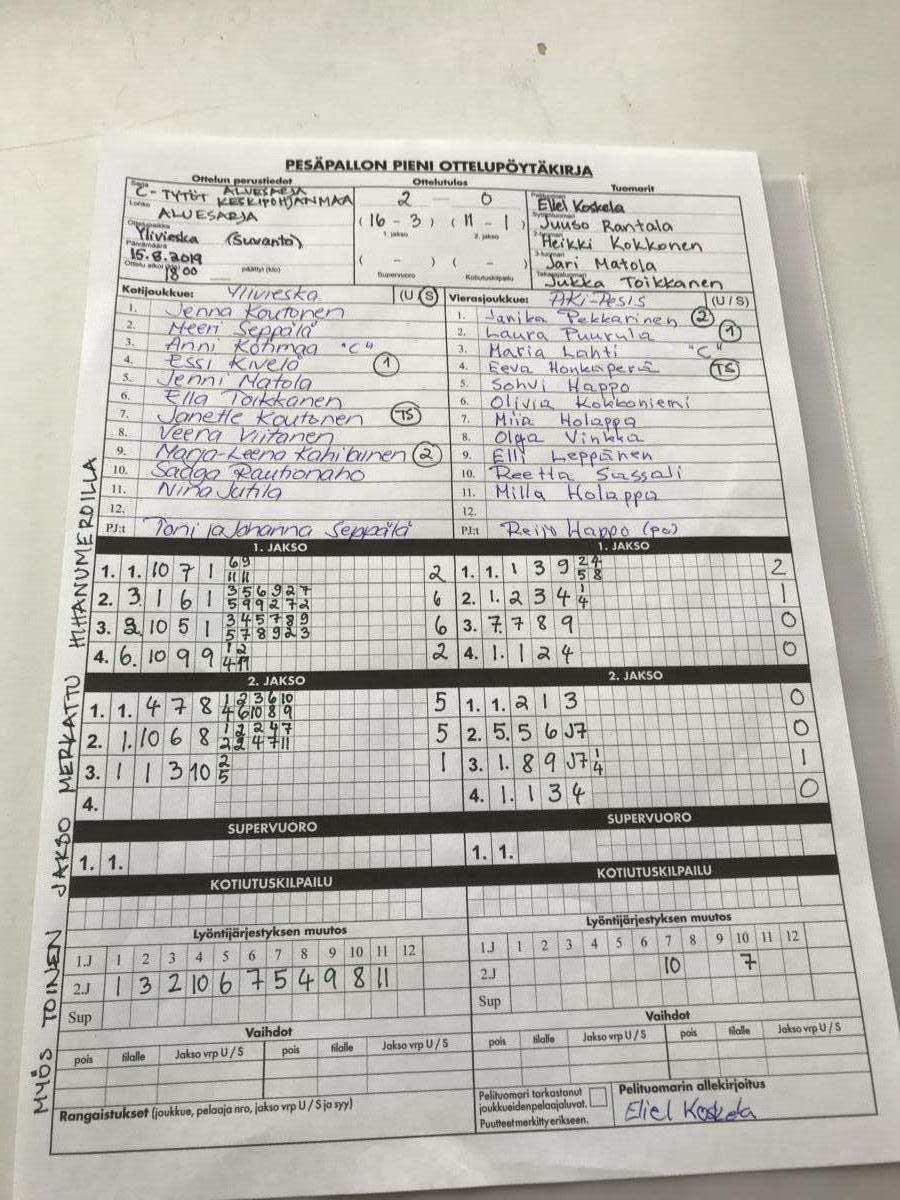 PESÄPALLON PIENI OTTELUPÖYTÄKIRJA
Ottelun perustiedot
Ottelutulos
Tuomarit
Sarja
C-TYTÖT ALUESARJA
KESKIPOHJANMAA
Lohko
ALUESARJA
Ottelupaikka
Ylivieska (Suvanto)
Päivämäärä
15.8.2019
Ottelu alkoi (klo)
18:00
päättyi (klo)
2 — 0
(16 - 3) (11 - 1)
1. jakso 2. jakso
( - ) ( - )
Supervuoro Kotiutuskilpailu
Pelituomari
Eliel Koskela
Syöttötuomari
Juuso Rantala
2-tuomari
Heikki Kokkonen
3-tuomari
Jari Matola
Takarajatuomari
Jukka Toikkanen
Kotijoukkue: Ylivieska (U/S)
1. Jenna Koutonen
2. Meeri Seppälä
3. Anni Kohmaa "C"
4. Essi Kivelä 1
5. Jenni Matola
6. Ella Toikkanen
7. Janette Koutonen TS
8. Veera Viitanen
9. Marja-Leena 2
10. Rautionaho
11. Nina Jutila
12.
PJ:t Toni ja Johanna Seppälä
Vierasjoukkue: AKi-Pesis (U/S)
1. Janika Pekkarinen 2
2. Laura Puurula 1
3. Maria Lahti "C"
4. Eeva Honkaperä TS
5. Sohvi Happo
6. Olivia Kokkoniemi
7. Miia Holappa
8. Olga Vinkka
9. Elli Leppänen
10. Reetta Sassali
11. Milla Holappa
12.
PJ:t Reijo Happo (po)
1. JAKSO
1. 1. 10 7 1 6 9 2
11 11
2. 3. 1 6 1 3 5 6 9 2 7 6
5 9 9 2 7 2
3. 2. 10 5 1 3 4 5 7 8 9 6
5 7 8 9 2 3
4. 6. 10 9 9 1 2 2
4 11
1. JAKSO
1. 1. 1 3 9 2 4 2
5 8
2. 1. 2 3 4 1 1
4
3. 7. 7 8 9 0
4. 1. 1 2 4 0
2. JAKSO
1. 1. 4 7 8 1 2 3 6 10 5
4 6 10 8 9
2. 1. 10 6 8 1 2 2 4 7 5
2 2 4 7 11
3. 1 1 3 10 2 1
5
4.
2. JAKSO
1. 1. 2 1 3 0
2. 5. 5 6 J7 0
3. 1. 8 9 J7 1 1
4
4. 1. 1 3 4 0
SUPERVUORO
1. 1.
SUPERVUORO
1. 1.
KOTIUTUSKILPAILU
KOTIUTUSKILPAILU
Lyöntijärjestyksen muutos
1.J 1 2 3 4 5 6 7 8 9 10 11 12
2.J 1 3 2 10 6 7 5 4 9 8 11
Sup
Lyöntijärjestyksen muutos
1.J 1 2 3 4 5 6 7 8 9 10 11 12
2.J 10 7
Sup
Vaihdot
pois tilalle Jakso vrp U / S pois tilalle Jakso vrp U / S
Vaihdot
pois tilalle Jakso vrp U / S pois tilalle Jakso vrp U / S
Rangaistukset (joukkue, pelaaja nro, jakso vrp U / S ja syy)
Pelituomari tarkastanut
joukkueiden pelaajaluvat.
Puutteet merkitty erikseen.
Pelituomarin allekirjoitus
Eliel Koskela
MYÖS TOINEN JAKSO MERKATTU HIHANUMEROILLA